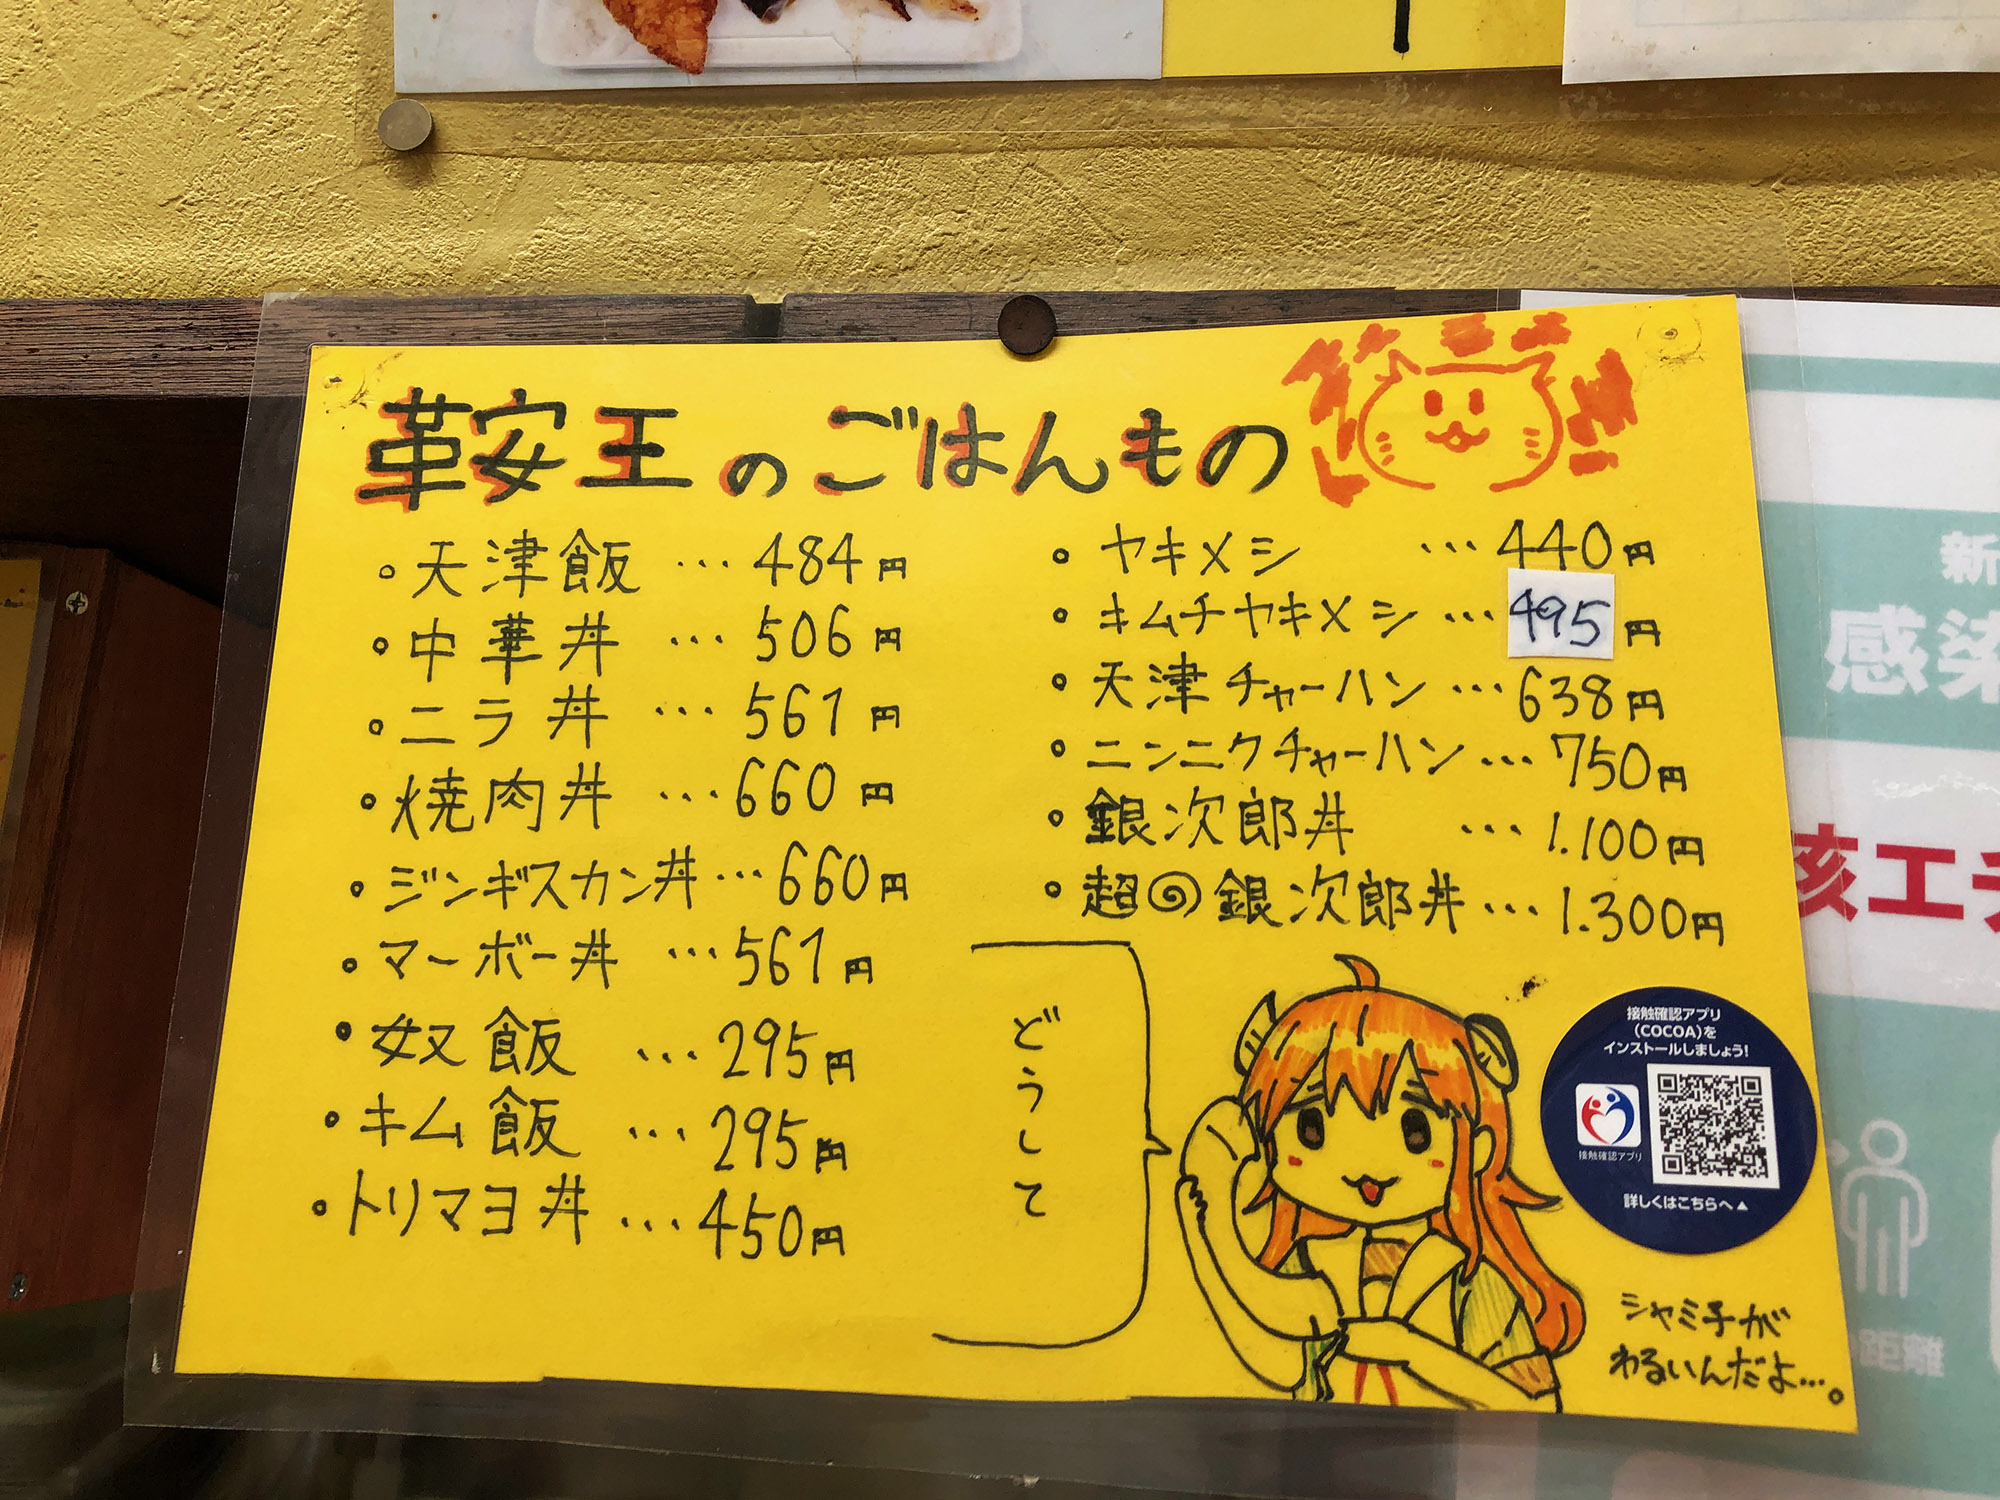 鞍王のごはんもの
。天津飯 …484円
。中華丼 …506円
。ニラ丼 …561円
。焼肉丼 …660円
。ジンギスカン丼…660円
。マーボー丼 …561円
。奴飯 …295円
。キム飯 …295円
。トリマヨ丼 …450円
。ヤキメシ …440円
。キムチヤキメシ…495円
。天津チャーハン…638円
。ニンニクチャーハン…750円
。銀次郎丼 …1.100円
。超銀次郎丼…1.300円
どうして
接触確認アプリ
(COCOA)を
インストールしましょう!
接触確認アプリ
詳しくはこちらへ▲
シャミ子が
わるいんだよ…。
新
感染
核エチ
距離